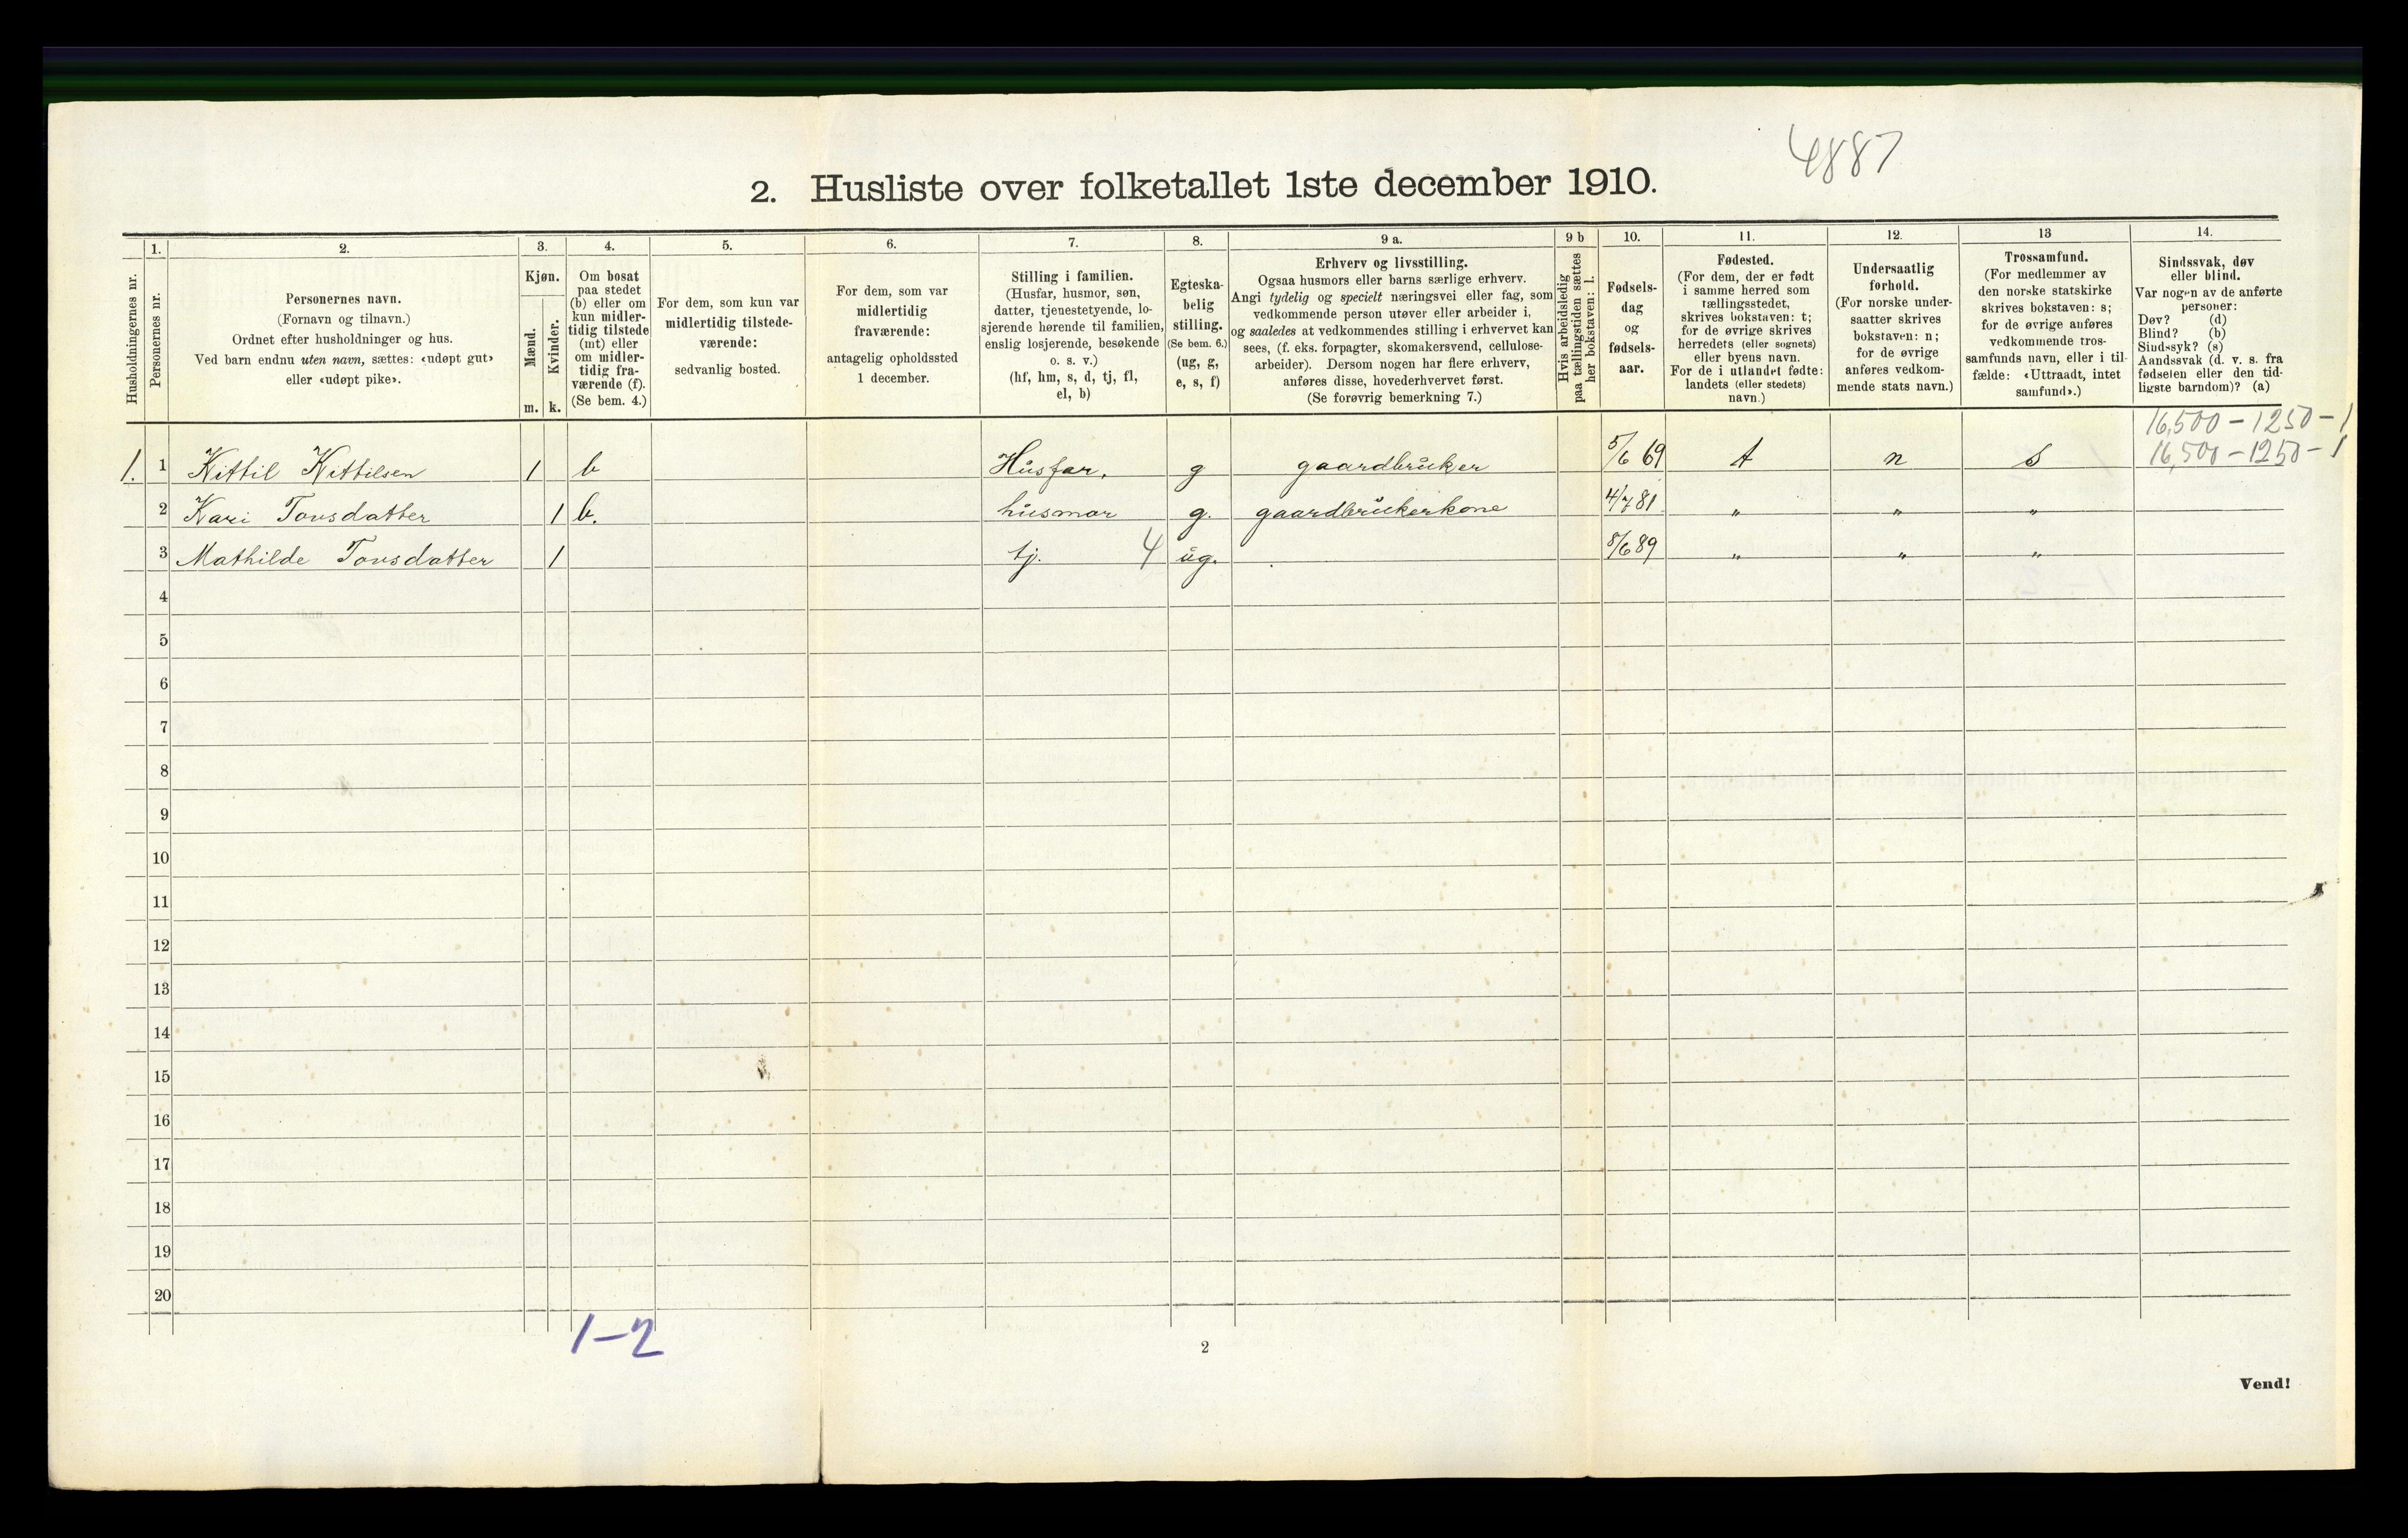 4887
2. Husliste over folketallet 1ste december 1910.
Husholdningernes nr.
1.
Personernes nr.
2.
Personernes navn.
(Fornavn og tilnavn.)
Ordnet efter husholdninger og hus.
Ved barn endnu uten navn, sættes: «udøpt gut»
eller «udøpt pike».
3.
Kjøn.
Mænd.
m.
Kvinder.
k.
4.
Om bosat
paa stedet
(b) eller om
kun midler-
tidig tilstede
(mt) eller
om midler-
tidig fra-
værende (f).
(Se bem. 4.)
5.
For dem, som kun var
midlertidig tilstede-
værende:
sedvanlig bosted.
6.
For dem, som var
midlertidig
fraværende:
antagelig opholdssted
1 december.
7.
Stilling i familien.
(Husfar, husmor, søn,
datter, tjenestetyende, lo-
sjerende hørende til familien,
enslig losjerende, besøkende
o. s. v.)
(hf, hm, s, d, tj, fl,
el, b)
8.
Egteska-
belig
stilling.
(Se bem. 6.)
(ug, g,
e, s, f)
9 a.
Erhverv og livsstilling.
Ogsaa husmors eller barns særlige erhverv.
Angi tydelig og specielt næringsvei eller fag, som
vedkommende person utøver eller arbeider i,
og saaledes at vedkommendes stilling i erhvervet kan
sees, (f. eks. forpagter, skomakersvend, cellulose-
arbeider). Dersom nogen har flere erhverv,
anføres disse, hovederhvervet først.
(Se forøvrig bemerkning 7.)
9 b
Hvis arbeidsledig
paa tællingstiden sættes
her bokstaven: l.
10.
Fødsels-
dag
og
fødsels-
aar.
11.
Fødested.
(For dem, der er født
i samme herred som
tællingsstedet,
skrives bokstaven: t;
for de øvrige skrives
herredets (eller sognets)
eller byens navn.
For de i utlandet fødte:
landets (eller stedets)
navn.)
12.
Undersaatlig
forhold.
(For norske under-
saatter skrives
bokstaven: n;
for de øvrige
anføres vedkom-
mende stats navn.)
13
Trossamfund.
(For medlemmer av
den norske statskirke
skrives bokstaven: s;
for de øvrige anføres
vedkommende tros-
samfunds navn, eller i til-
fælde: «Uttraadt, intet
samfund».)
14.
Sindssvak, døv
eller blind.
Var nogen av de anførte
personer:
Døv? (d)
Blind? (b)
Sindssyk? (s)
Aandssvak (d. v. s. fra
fødselen eller den tid-
ligste barndom)? (a)
16,500 - 1250 - 1
1. 1 Kittil Kittilsen 1 b Husfar. g gaardbruker 5/6 69 t n s 16,500 - 1250 - 1
2 Kari Tovsdatter 1 b. husmor g. gaardbrukerkone 4/7 81 " " "
3 Mathilde Tovsdatter 1 tj. 4 ug. 8/6 89 " " "
4
5
6
7
8
9
10
11
12
13
14
15
16
17
18
19
20
1-2
2
Vend!